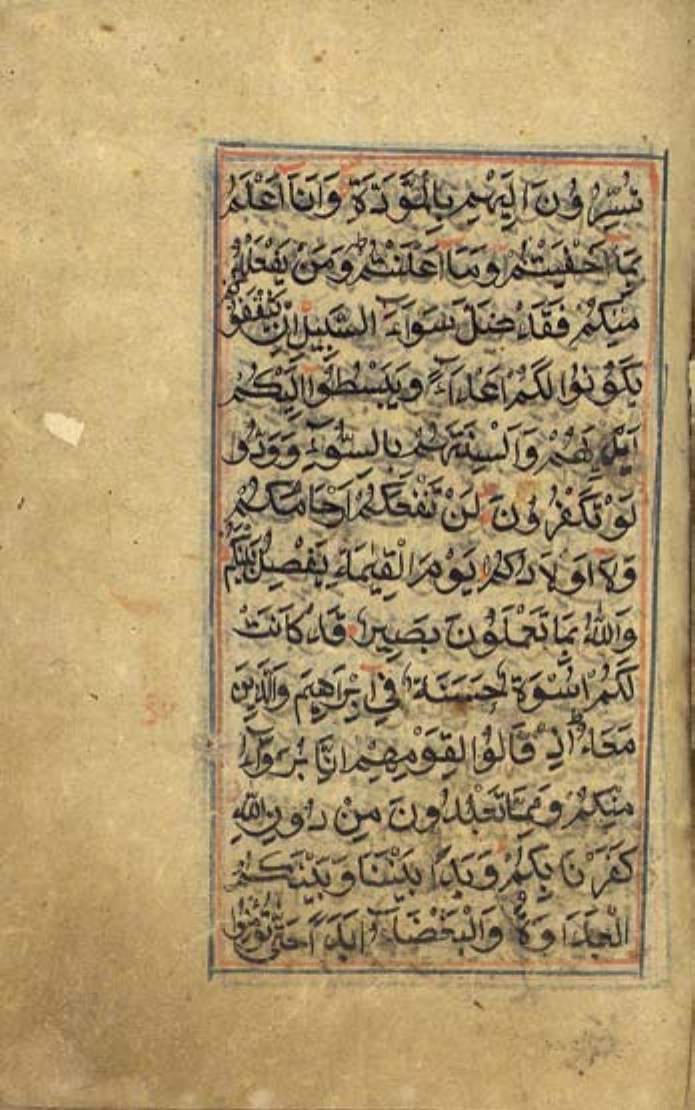 تُسِرُّونَ اِلَيْهِمْ بِالْمَوَدَّةِ وَاَنَا اَعْلَمُ
بِمَا اَخْفَيْتُمْ وَمَا اَعْلَنْتُمْ وَمَنْ يَفْعَلْهُ
مِنْكُمْ فَقَدْ ضَلَّ سَوَاءَ السَّبِيلِ اِنْ يَثْقَفُوكُمْ
يَكُونُوا لَكُمْ اَعْدَاءً وَيَبْسُطُوا اِلَيْكُمْ
اَيْدِيَهُمْ وَاَلْسِنَتَهُمْ بِالسُّوءِ وَوَدُّوا
لَوْ تَكْفُرُونَ لَنْ تَنْفَعَكُمْ اَرْحَامُكُمْ
وَلَا اَوْلَادُكُمْ يَوْمَ الْقِيٰمَةِ يَفْصِلُ بَيْنَكُمْ
وَاللهُ بِمَا تَعْمَلُونَ بَصِيرٌ قَدْ كَانَتْ
لَكُمْ اُسْوَةٌ حَسَنَةٌ فِي اِبْرَاهِيمَ وَالَّذِينَ
مَعَهُ اِذْ قَالُوا لِقَوْمِهِمْ اِنَّا بُرَءَؤُا
مِنْكُمْ وَمِمَّا تَعْبُدُونَ مِنْ دُونِ اللهِ
كَفَرْنَا بِكُمْ وَبَدَا بَيْنَنَا وَبَيْنَكُمُ
الْعَدَاوَةُ وَالْبَغْضَاءُ اَبَدًا حَتَّى تُؤْمِنُوا